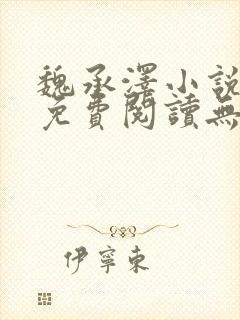 魏承澤小說
免費閱讀無
伊寧東